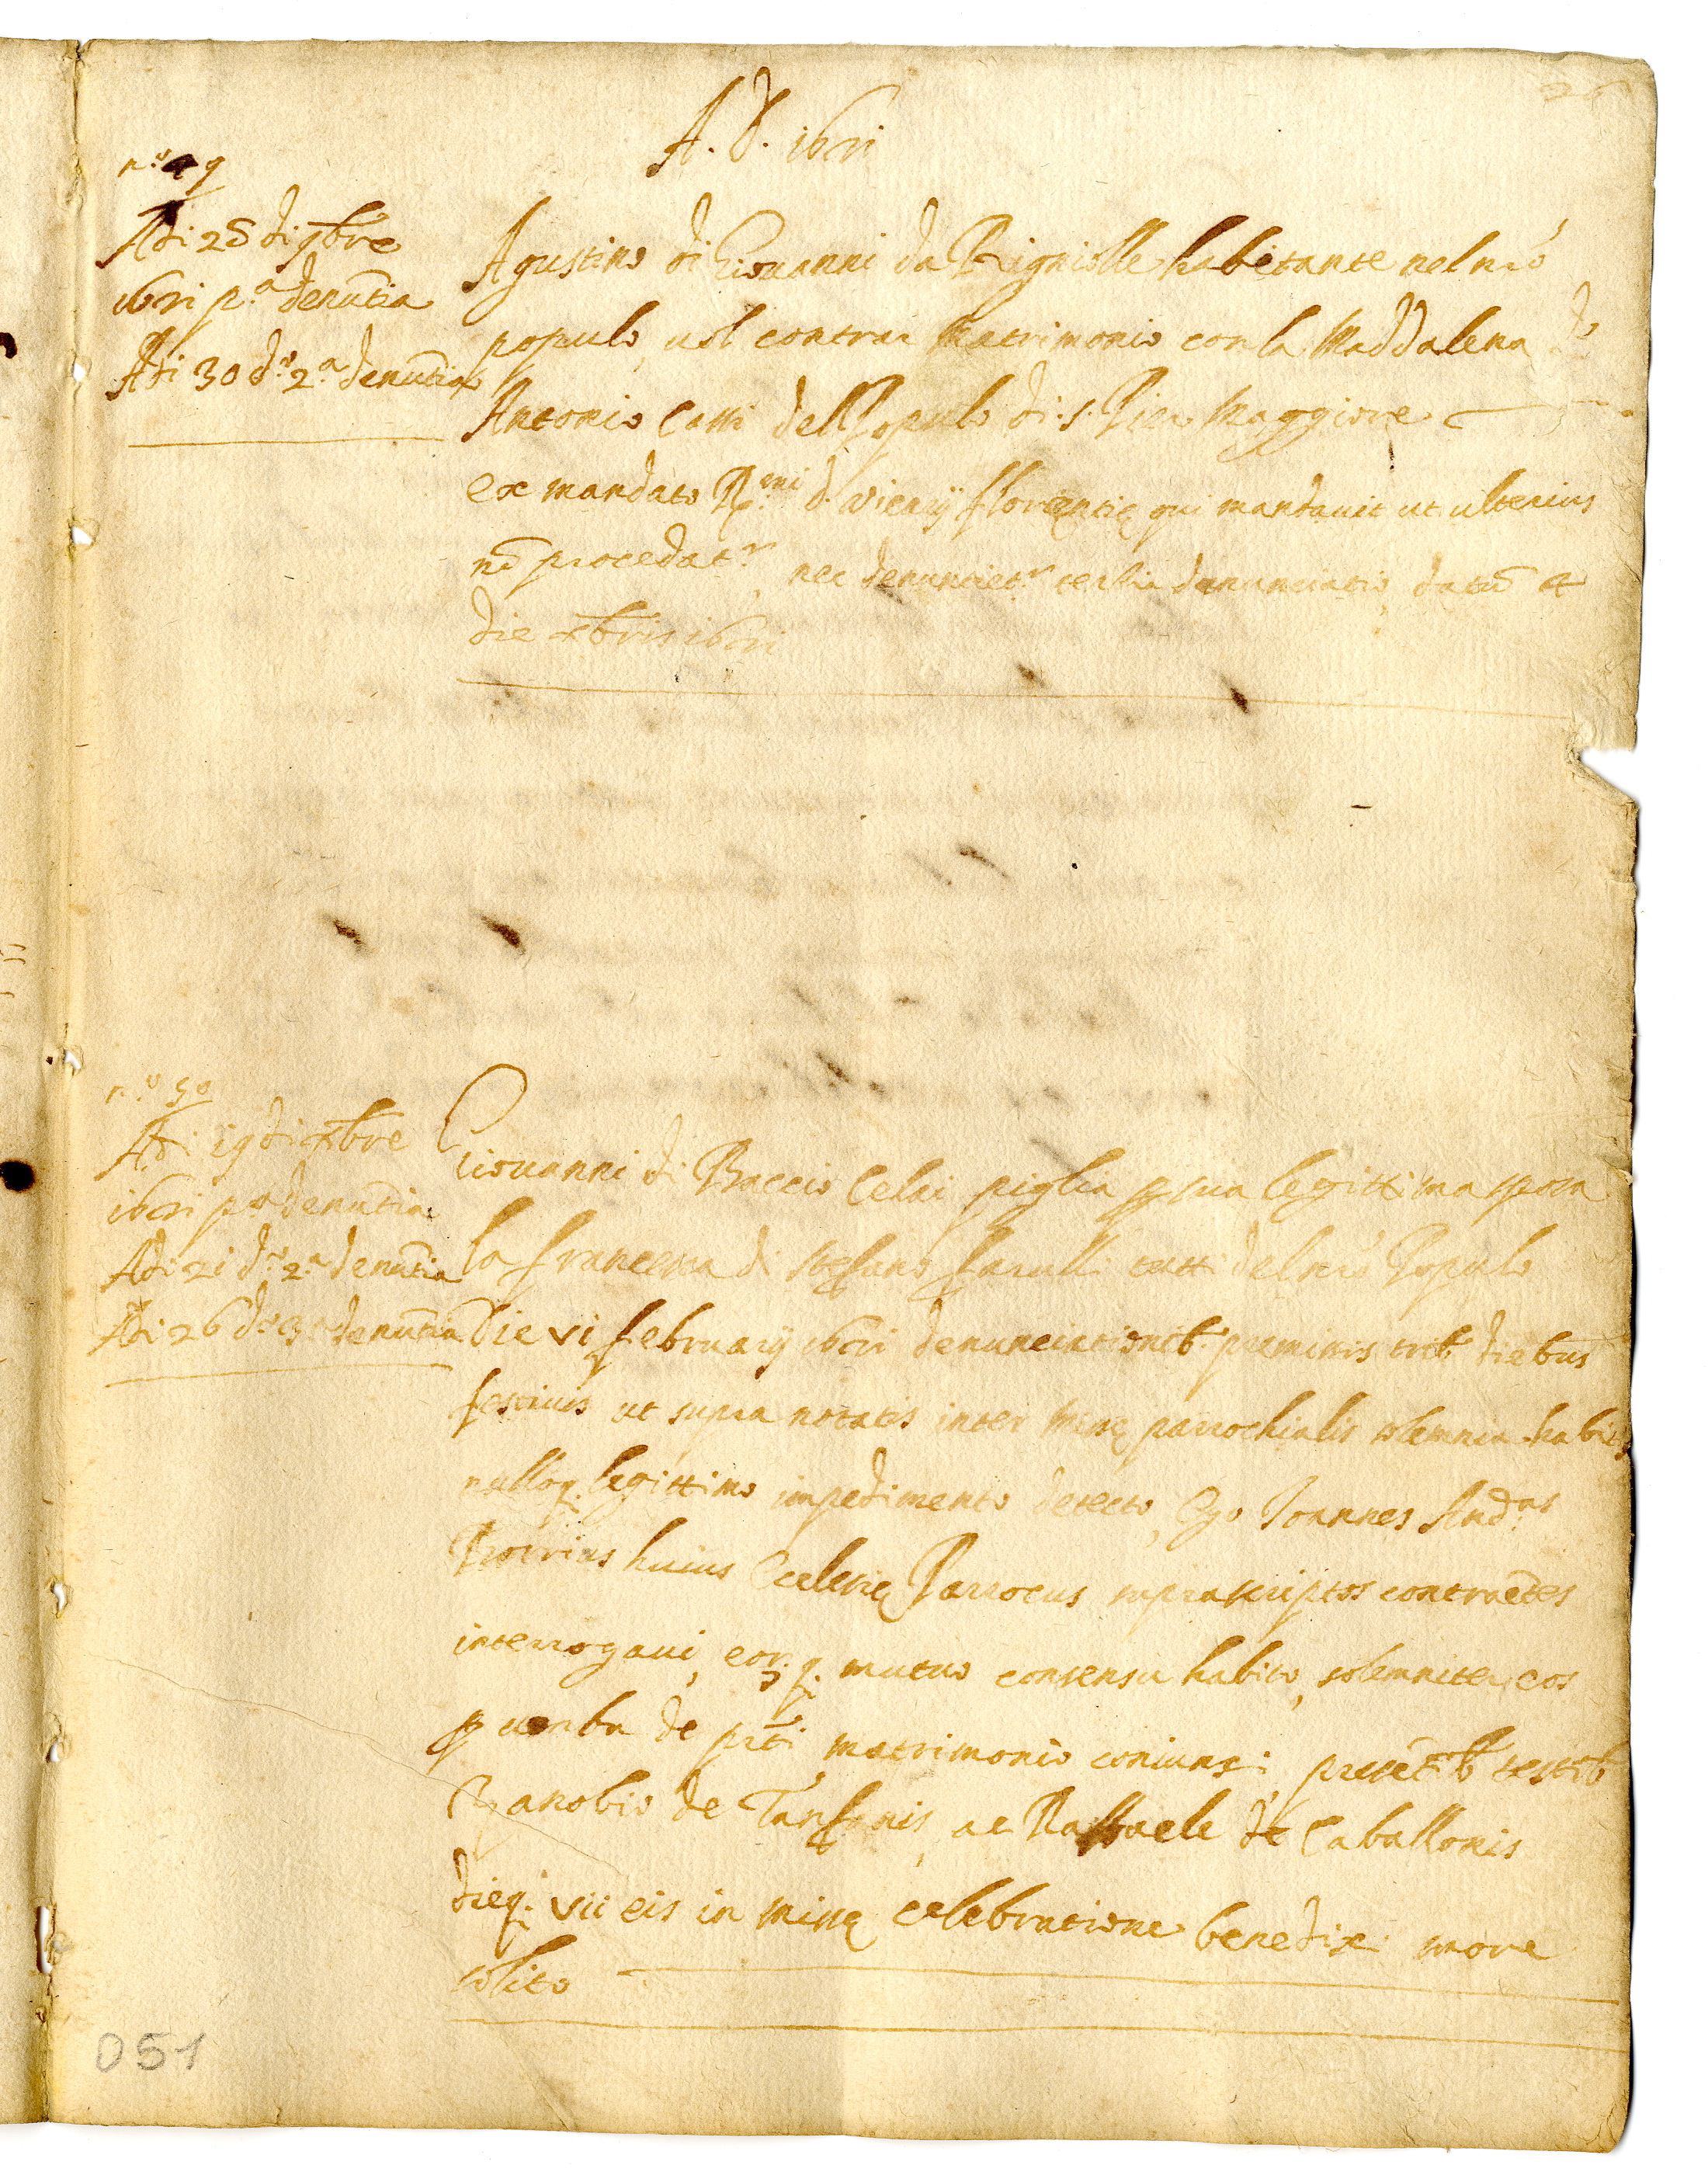 26
A. D. 1621
n.º 49
Adi 28 di 9bre
1621 p.ª denũtia
Adi 30 d.º 2.ª denũtia
Agustino di Giovanni da Rigniolle habitante nel nr̃o
populo, vol contrar Matrimonio con la Maddalena di
Antonio Catti del Populo di S. Pier Maggiore
ex mandato R.mi d. Vicarij florentię qui mandavit ut ulterius
nõ procedat.r, nec denunciet.r tertia denunciatio, datũ
die xbris 1621
n.º 50
Adi 19 di xbre
1621 p.ª denũtia
Adi 21 d.º 2.ª denũtia
Adi 26 d.º 3.ª denũtia
Giovanni di Baccio Celai piglia p sua legittima sposa
la francesca di stefano tutti del nr̃o Populo
Die vi februarij 1621 denunciationib. premissis trib. diebus
festivis ut supra notatis inter missę parrochialis solemnia habitis
nulloq. legittimo impedimento detecto, Ego Joannes And.as
huius Ecclesię Parrocus suprascriptos contraẽtes
interrogavi, eor. q. mutuo consensu habito, solemniter eos
p verba de pñti matrimonio coniunxi, presẽtib. testib.
Zanobio de Tanfanis, ac Raffaele de Caballonis
dieq. vii eis in missę celebratione benedixi more
solito
051